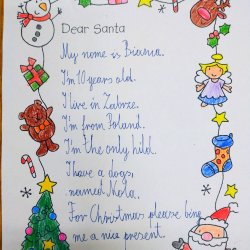 Dear Santa
My name is Bianca.
I'm 10 years old.
I live in Zabrze.
I'm from Poland.
I'm the only hild.
I have a dogs,
named Mela.
For Christmas please bing
me a nice present.